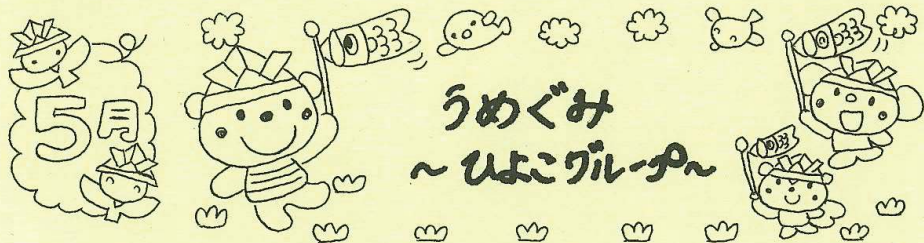 5月
うめぐみ
~ひよこグループ~